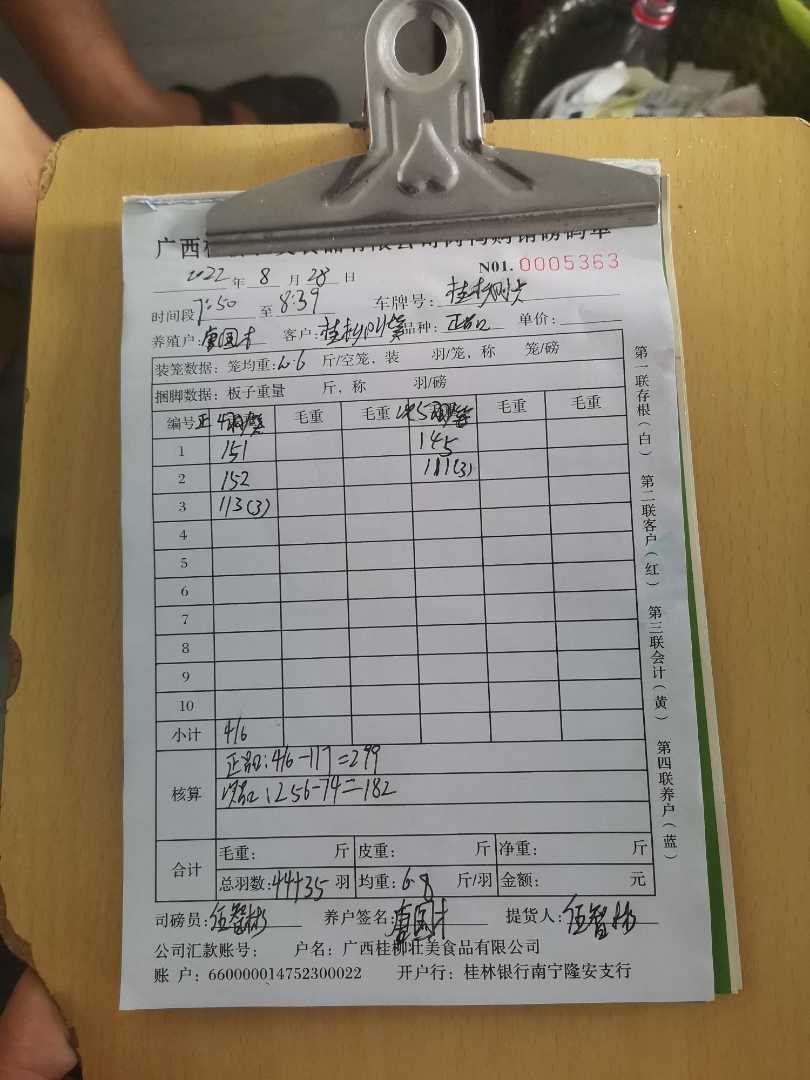 广西
N01. 0005363
2022 年 8 月 28 日
时间段 7:50 至 8:39 车牌号:
养殖户: 唐国才 客户: 品种: 正品 单价:
装笼数据: 笼均重: 斤/空笼, 装 羽/笼, 称 笼/磅
捆脚数据: 板子重量 斤, 称 羽/磅
编号 毛重 毛重 毛重 毛重
1 151 145
2 152 111(3)
3 113(3)
4
5
6
7
8
9
10
小计 416
核算 正品: 416-117=299
256-74=182
合计 毛重: 斤 皮重: 斤 净重: 斤
总羽数: 44+35 羽 均重: 6.8 斤/羽 金额: 元
司磅员: 伍智彬 养户签名: 唐国才 提货人: 伍智彬
公司汇款账号: 户名: 广西桂柳壮美食品有限公司
账 户: 660000014752300022 开户行: 桂林银行南宁隆安支行
第一联存根(白) 第二联客户(红) 第三联会计(黄) 第四联养户(蓝)